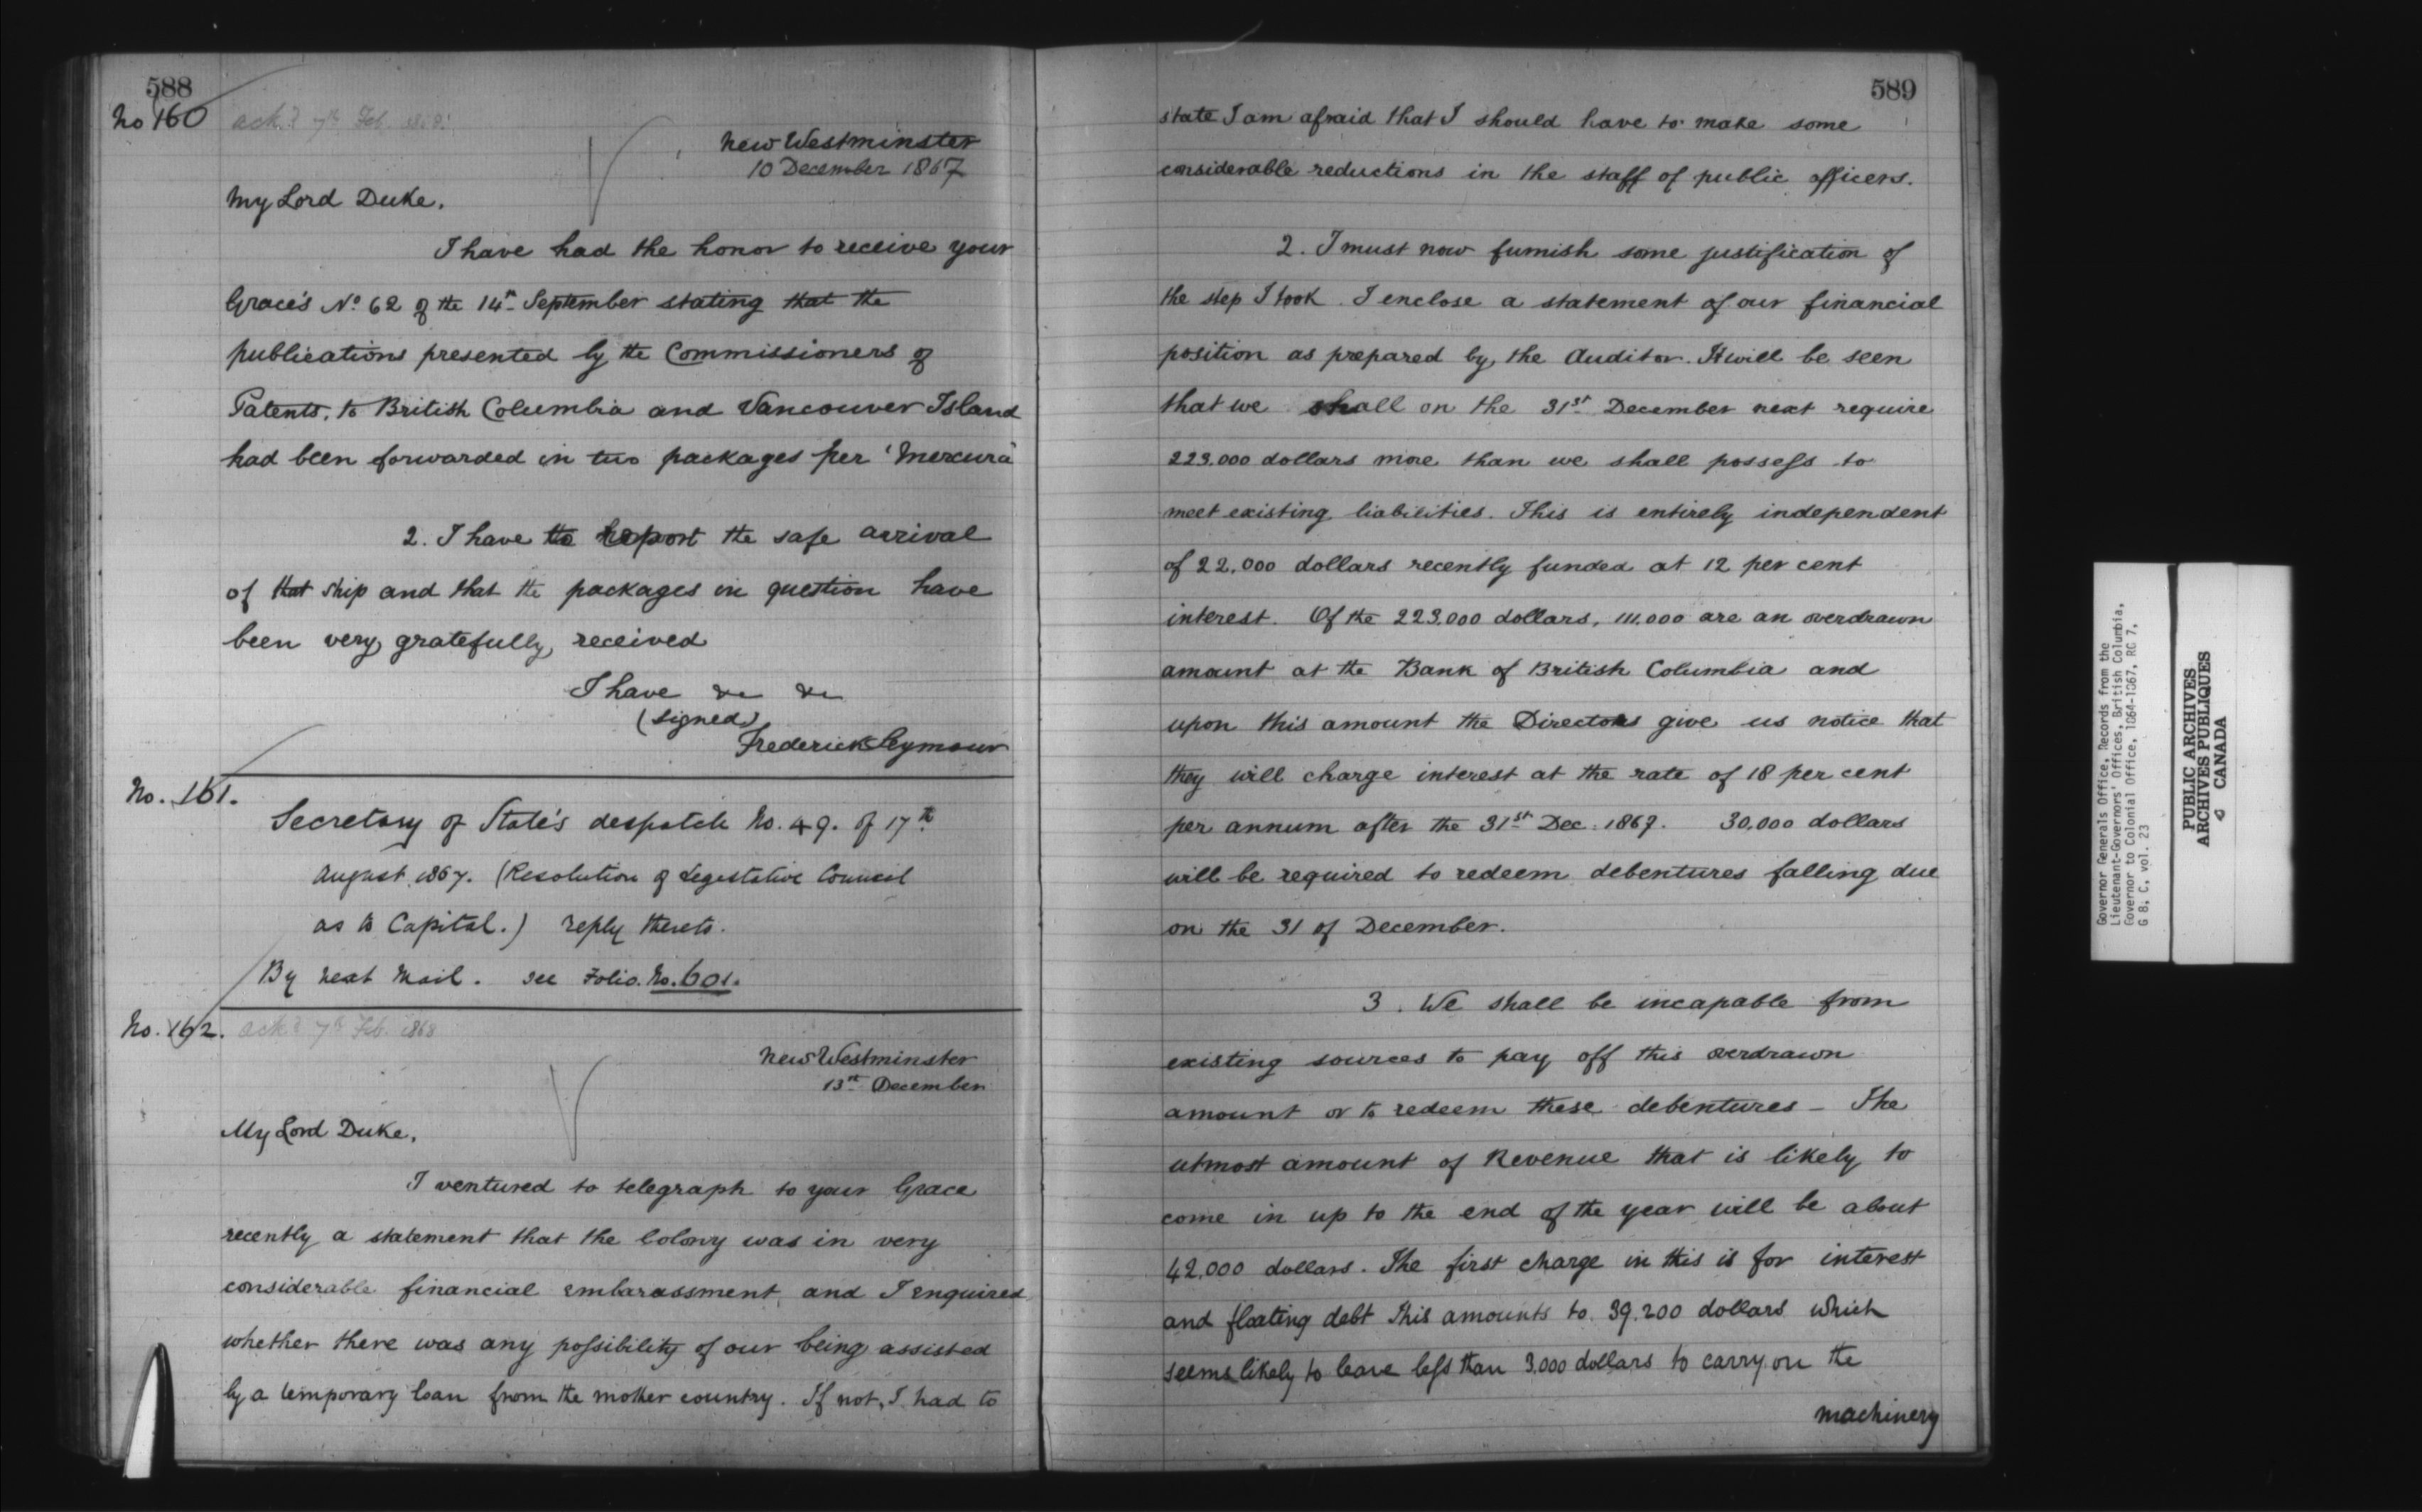 588
No 160
ackd 7th Feb. 1868.
New Westminster
10 December 1867
My Lord Duke,
I have had the honor to receive your
Grace's No. 62 of the 14th September stating that the
publications presented by the Commissioners of
Patents, to British Columbia and Vancouver Island
had been forwarded in two packages per 'Mercura'
2. I have to report the safe arrival
of that ship and that the packages in question have
been very gratefully received
I have &c &c
(signed)
Frederick Seymour
No. 161.
Secretary of State's despatch No. 49. of 17th
August 1867. (Resolution of Legislative Council
as to Capital.) reply thereto.
By next Mail. see Folio. No. 601.
No. 162.
ackd 7th Feb. 1868
New Westminster
13th December
My Lord Duke,
I ventured to telegraph to your Grace
recently a statement that the Colony was in very
considerable financial embarassment, and I enquired
whether there was any possibility of our being assisted
by a temporary loan from the mother country. If not, I had to
589
state I am afraid that I should have to make some
considerable reductions in the staff of public officers.
2. I must now furnish some justification of
the step I took. I enclose a statement of our financial
position as prepared by the Auditor. It will be seen
that we shall on the 31st December next require
223.000 dollars more than we shall possess to
meet existing liabilities. This is entirely independent
of 22,000 dollars recently funded at 12 per cent
interest. Of the 223.000 dollars, 111.000 are an overdrawn
amount at the Bank of British Columbia and
upon this amount the Directors give us notice that
they will charge interest at the rate of 18 per cent
per annum after the 31st Dec: 1867. 30,000 dollars
will be required to redeem debentures falling due
on the 31 of December.
3. We shall be incapable from
existing sources to pay off this overdrawn
amount or to redeem these debentures - The
utmost amount of Revenue that is likely to
come in up to the end of the year will be about
42,000 dollars. The first charge in this is for interest
and floating debt this amounts to 39.200 dollars which
seems likely to leave less than 3.000 dollars to carry on the
machinery
Governor Generals Office, Records from the
Lieutenant-Governors' Offices, British Columbia,
Governor to Colonial Office, 1864-1867, RG 7,
G 8, C, vol. 23
PUBLIC ARCHIVES
ARCHIVES PUBLIQUES
CANADA